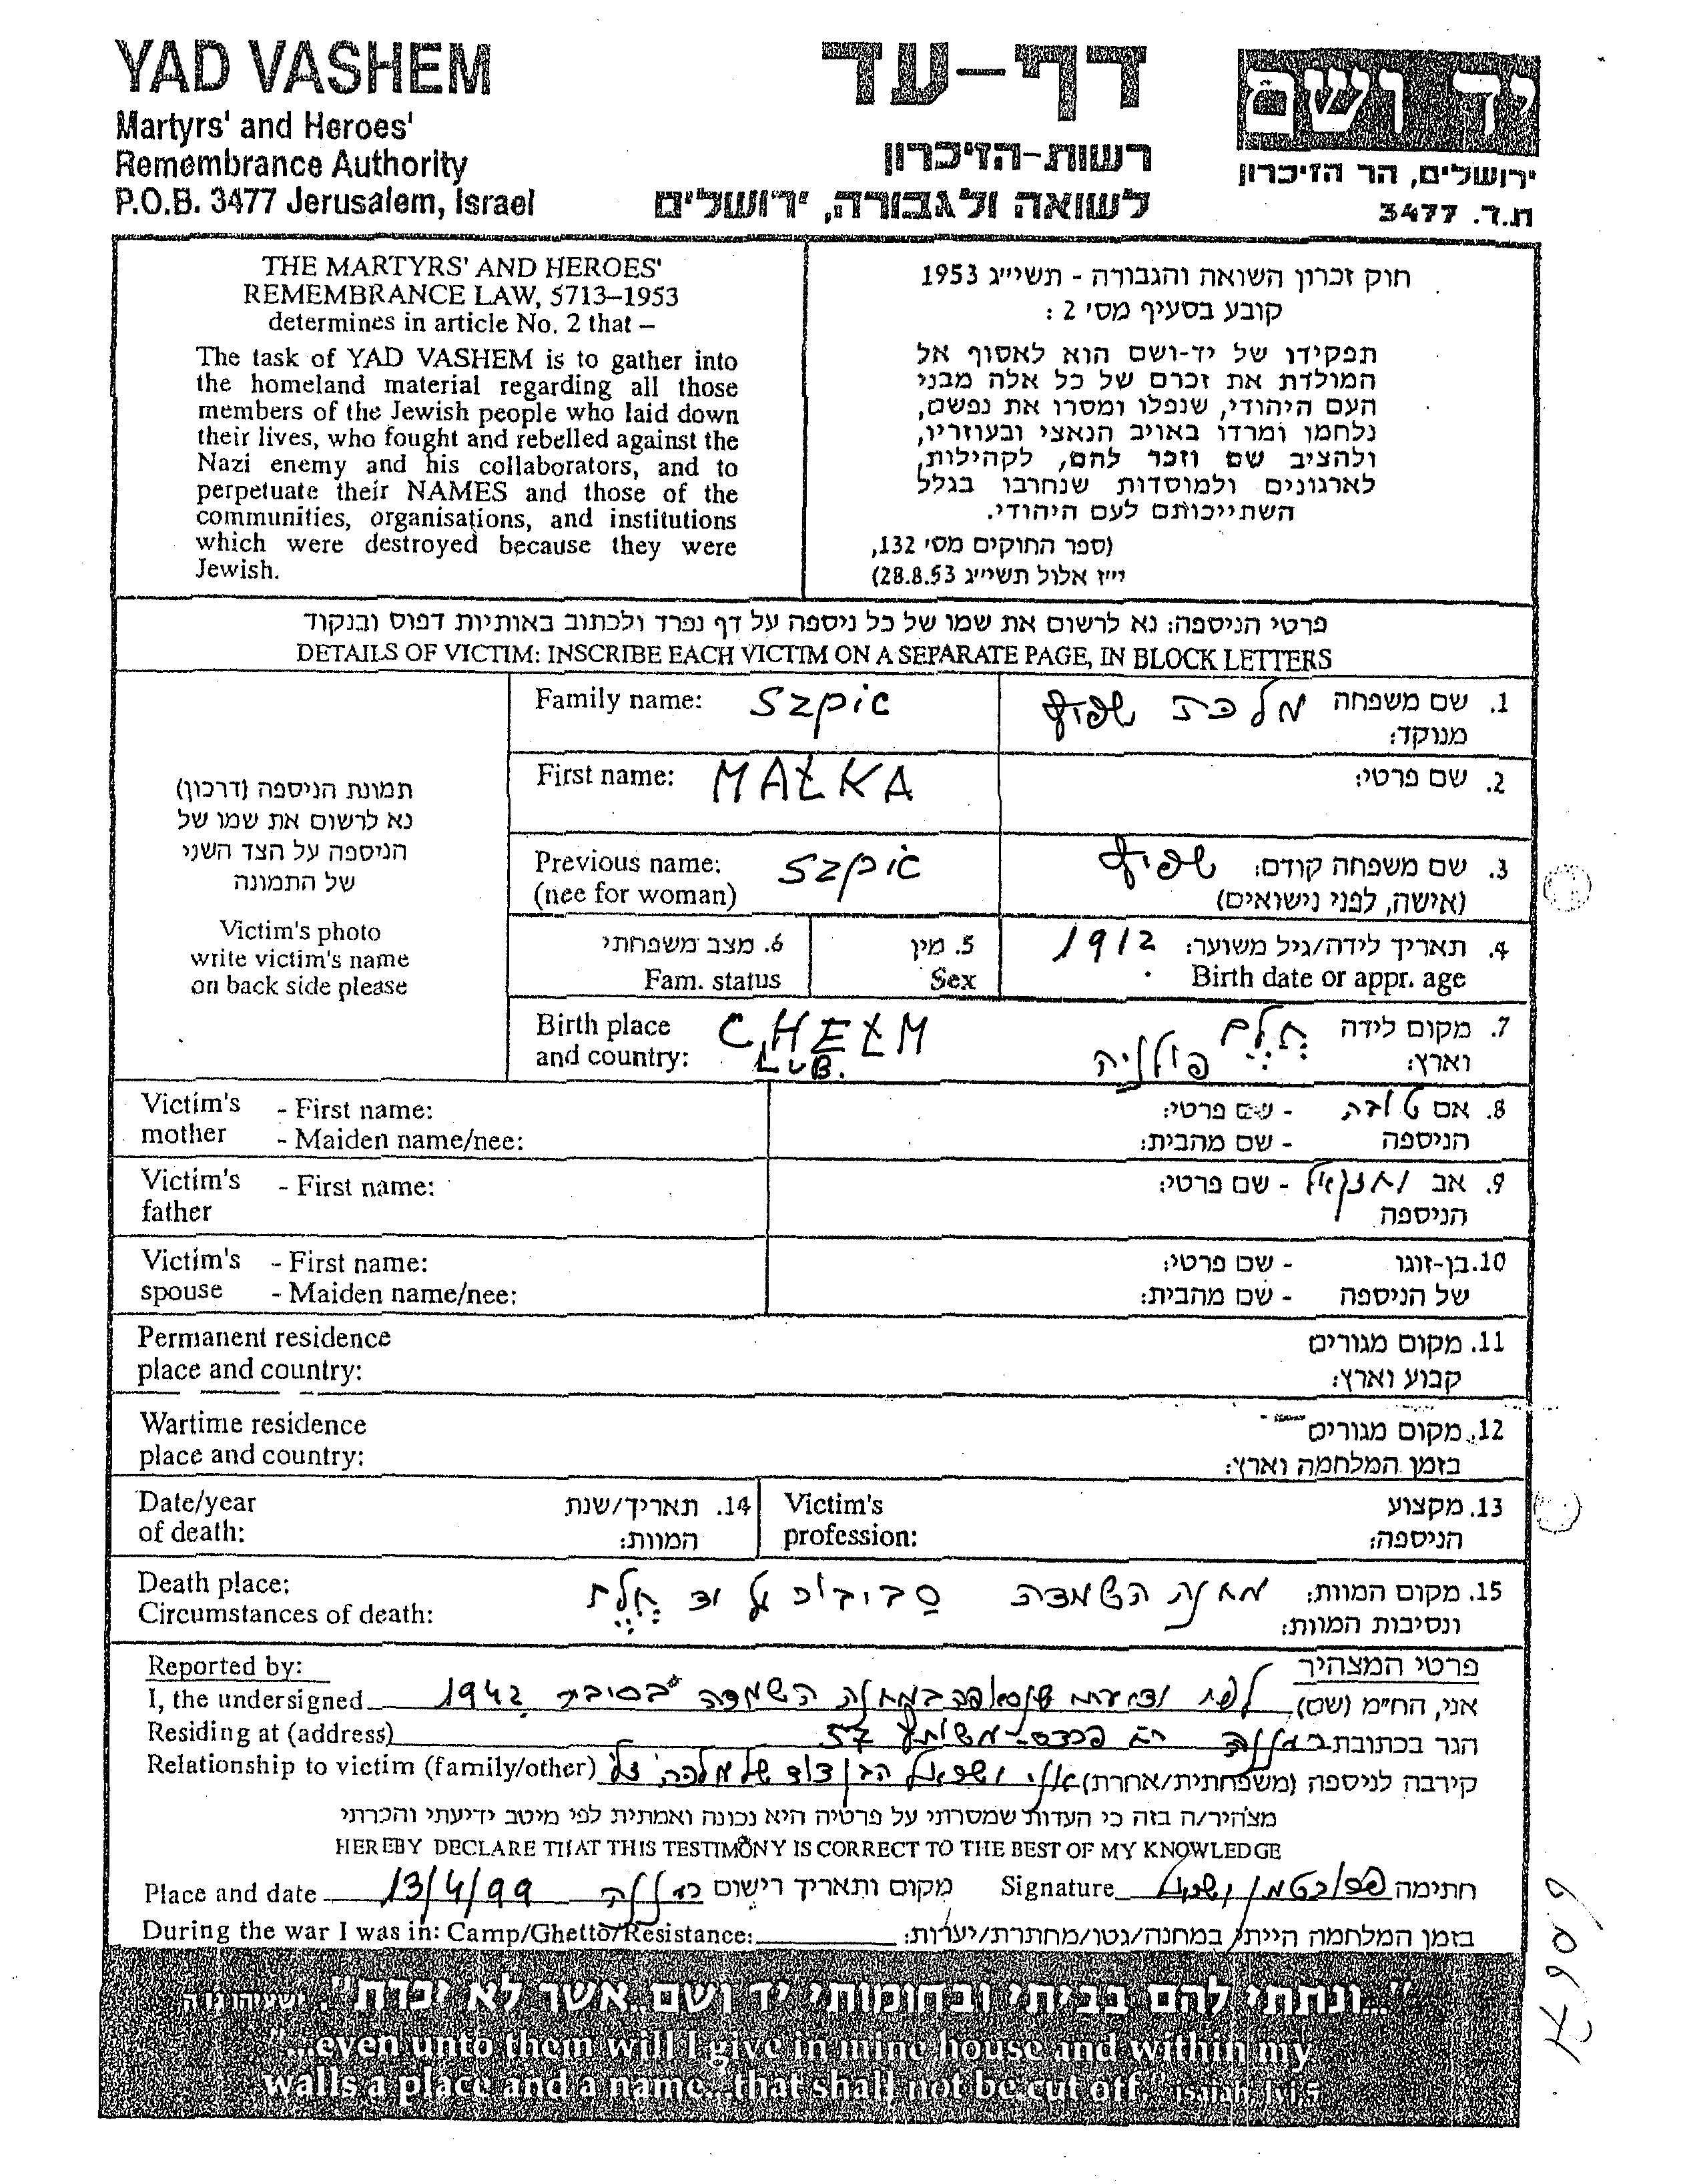 YAD VASHEM
Martyrs' and Heroes'
Remembrance Authority
P.O.B. 3477 Jerusalem, Israel
דף-עד
רשות-הזיכרון
לשואה ולגבורה, ירושלים
יד ושם
ירושלים, הר הזיכרון
ת.ד. 3477
THE MARTYRS' AND HEROES'
REMEMBRANCE LAW, 5713–1953
determines in article No. 2 that –
The task of YAD VASHEM is to gather into
the homeland material regarding all those
members of the Jewish people who laid down
their lives, who fought and rebelled against the
Nazi enemy and his collaborators, and to
perpetuate their NAMES and those of the
communities, organisations, and institutions
which were destroyed because they were
Jewish.
חוק זכרון השואה והגבורה - תשי״ג 1953
קובע בסעיף מס׳ 2 :
תפקידו של יד-ושם הוא לאסוף אל
המולדת את זכרם של כל אלה מבני
העם היהודי, שנפלו ומסרו את נפשם,
נלחמו ומרדו באויב הנאצי ובעוזריו,
ולהציב שם וזכר להם, לקהילות,
לארגונים ולמוסדות שנחרבו בגלל
השתייכותם לעם היהודי.
(ספר החוקים מס׳ 132,
י״ז אלול תשי״ג 28.8.53)
פרטי הניספה: נא לרשום את שמו של כל ניספה על דף נפרד ולכתוב באותיות דפוס ובנקוד
DETAILS OF VICTIM: INSCRIBE EACH VICTIM ON A SEPARATE PAGE, IN BLOCK LETTERS
תמונת הניספה (דרכון)
נא לרשום את שמו של
הניספה על הצד השני
של התמונה
Victim's photo
write victim's name
on back side please
Family name: Szpic
1. שם משפחה מלכה שפיץ
מנוקד:
First name: MAŁKA
2. שם פרטי:
Previous name: Szpic
(nee for woman)
3. שם משפחה קודם: שפיץ
(אישה, לפני נישואים)
4. תאריך לידה/גיל משוער: 1912
Birth date or appr. age
5. מין
Sex
6. מצב משפחתי
Fam. status
Birth place CHEŁM
and country: LUB.
7. מקום לידה חלם
וארץ: פולניה
Victim's - First name:
mother - Maiden name/nee:
8. אם טובה - שם פרטי:
הניספה - שם מהבית:
Victim's - First name:
father
9. אב יחזקאל - שם פרטי:
הניספה
Victim's - First name:
spouse - Maiden name/nee:
10. בן-זוגו - שם פרטי:
של הניספה - שם מהבית:
Permanent residence
place and country:
11. מקום מגורים
קבוע וארץ:
Wartime residence
place and country:
12. מקום מגורים
בזמן המלחמה וארץ:
Date/year
of death:
14. תאריך/שנת
המוות:
Victim's
profession:
13. מקצוע
הניספה:
Death place:
Circumstances of death:
15. מקום המוות: מחנה השמדה סביבות חלם
ונסיבות המוות:
Reported by:
פרטי המצהיר
I, the undersigned
אני, הח״מ (שם) לפי במחנה השמדה 1942
Residing at (address)
הגר בכתובת 57
Relationship to victim (family/other)
קירבה לניספה (משפחתית/אחרת) אני הבן דוד של מלכה ז״ל
מצהיר/ה בזה כי העדות שמסרתי על פרטיה היא נכונה ואמתית לפי מיטב ידיעתי והכרתי
HEREBY DECLARE THAT THIS TESTIMONY IS CORRECT TO THE BEST OF MY KNOWLEDGE
Place and date 13/4/99 מקום ותאריך רישום
Signature חתימה
During the war I was in: Camp/Ghetto/Resistance:
בזמן המלחמה הייתי במחנה/גטו/מחתרת/יערות:
"...ונתתי להם בביתי ובחומותי יד ושם...אשר לא יכרת". ישעיהו נו ה
"...even unto them will I give in mine house and within my
walls a place and a name...that shall not be cut off." isaiah lvi 5